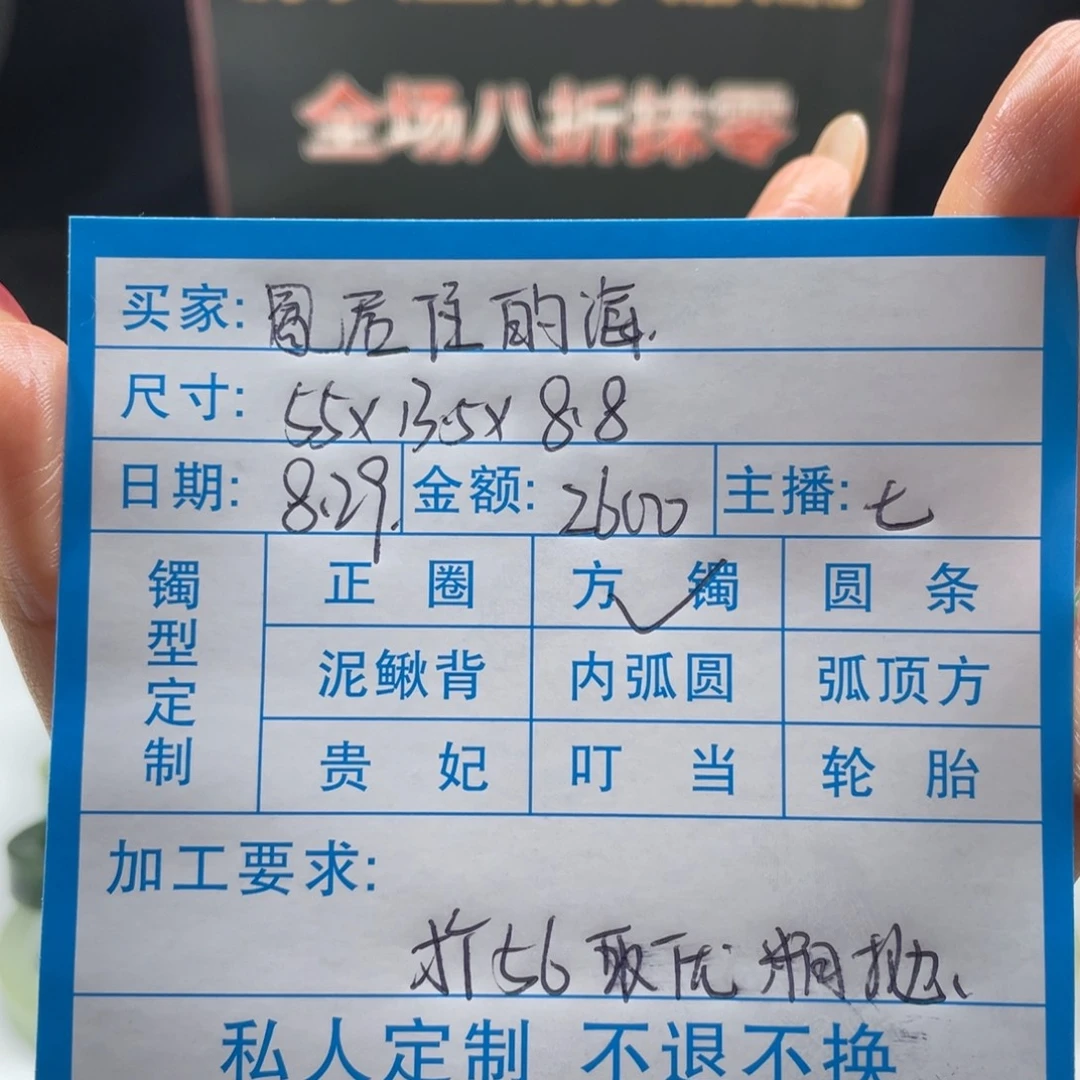 全场八折抹零
买家: 居住的海.
尺寸: 55x13.5x8.8
日期: 8.29. 金额: 2600 主播: 七
镯型定制
正圈 方镯 圆条
泥鳅背 内弧圆 弧顶方
贵妃 叮当 轮胎
加工要求:
56取优精抛、
私人定制 不退不换